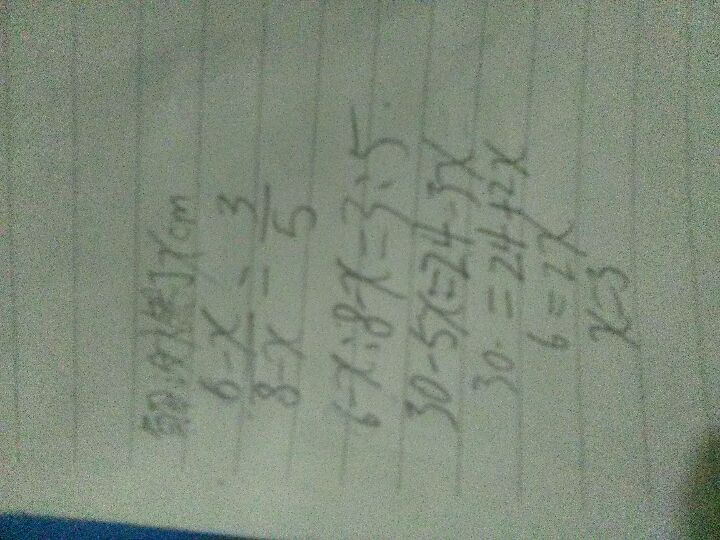 解:设燃了xcm
6-x/8-x = 3/5
6-x:8-x=3:5
30-5x=24-3x
30=24+2x
6=2x
x=3